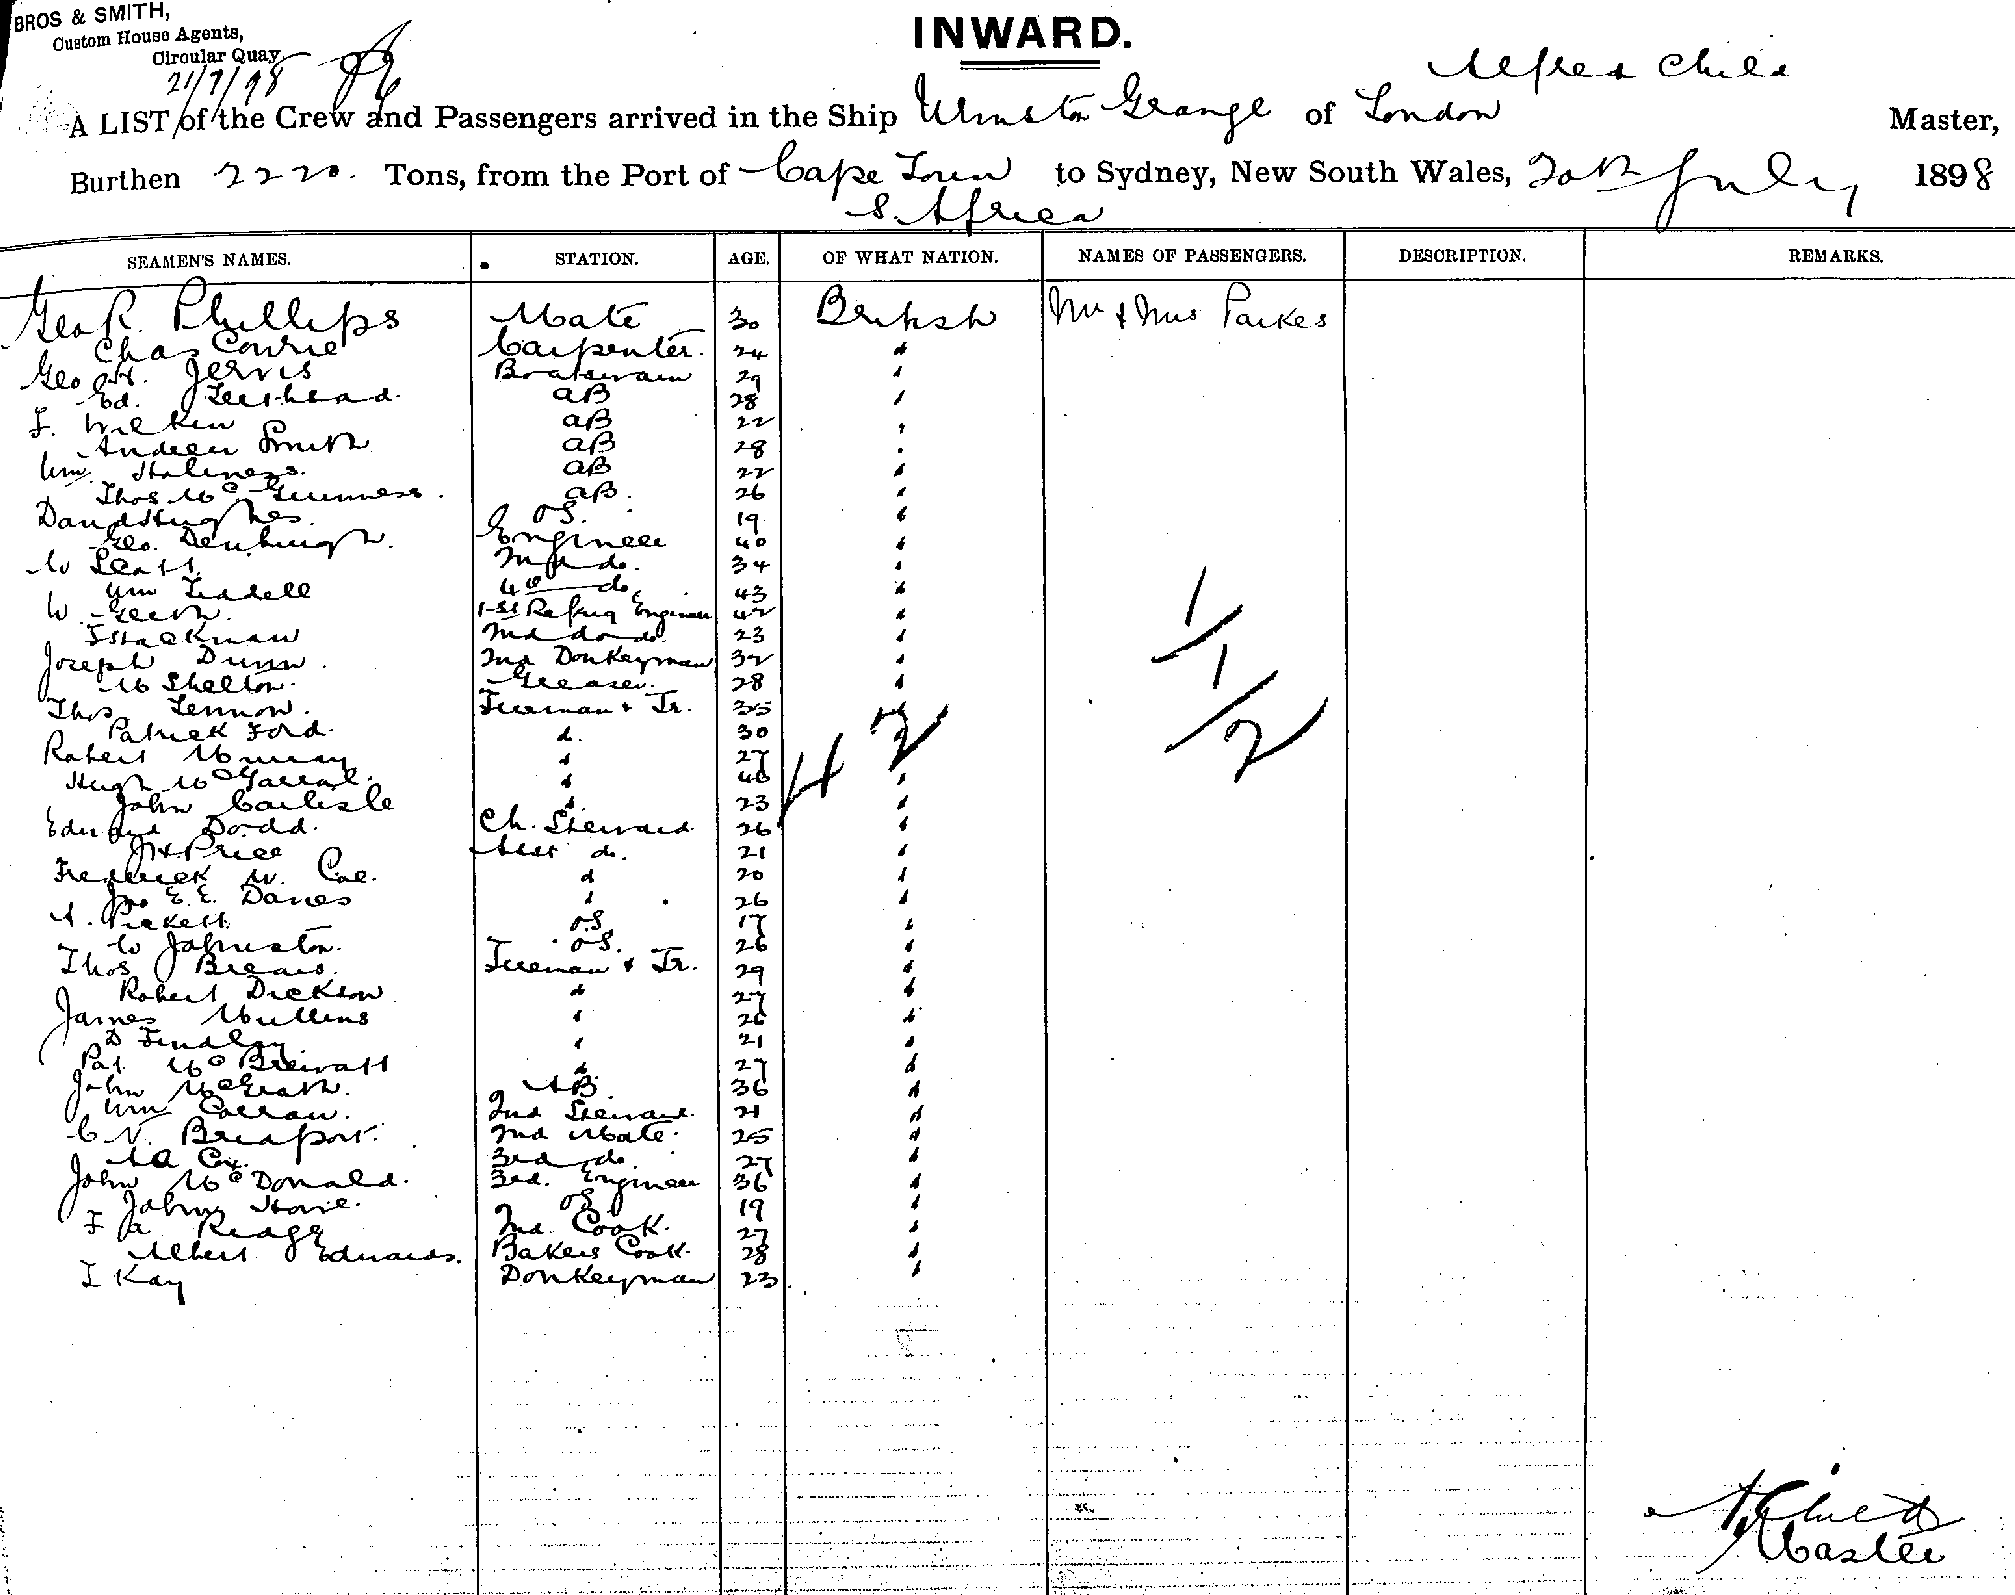 BROS & SMITH,
Custom House Agents,
Circular Quay
21/7/98
INWARD.
Alfred Child
A LIST of the Crew and Passengers arrived in the Ship Urmston Grange of London Master,
Burthen 2220. Tons, from the Port of Cape Town to Sydney, New South Wales, 20th July 1898
S. Africa
SEAMEN'S NAMES. STATION. AGE. OF WHAT NATION. NAMES OF PASSENGERS. DESCRIPTION. REMARKS.
Geo R. Phillips Mate 30 British Mr & Mrs Parkes
Chas Cowrie Carpenter. 24 "
Geo H. Jervis Boatswain 29 "
Ed. AB 28 "
F. Wilken AB 22 "
Andrew Smith AB 28 "
Wm AB 22 "
Thos McGuinness. AB. 26 "
David Hughes. OS. 19 "
Geo. Denbigh. Engineer 40 "
W 2nd do. 34 "
Wm Liddell 4th do. 43 "
W. 1st Refrig Engineer 42 "
F Stackman 2nd do do 23 "
Joseph Dunn. 2nd Donkeyman 32 "
M Shelton. Greaser. 28 "
Thos Lennon. Fireman & Tr. 35 "
Patrick Ford. d. 30 "
Robert Murray " 27 "
Hugh Mc " 40 "
John Carlisle " 23 "
Edward Dodd. Ch. Steward 26 "
J H Price Asst do. 21 "
Frederick W. Coe. d 20 "
Jno E. E. Davies " 26 "
A. Pickett OS. 17 "
W Johnston. OS. 26 "
Thos Breais. Fireman & Tr. 29 "
Robert Dickson " 27 "
James Mullins " 26 "
D Findlay " 21 "
Pat Mc " 27 "
John McGrath. AB. 36 "
Wm Curran. 2nd Steward. 21 "
C N. Breaport. 2nd Mate. 25 "
A A Cox. 3rd do. 27 "
John McDonald. 3rd. Engineer 36 "
John Howe. OS 19 "
F A. Ridge 2nd. Cook. 27 "
Albert Edwards. Bakers Cook. 28 "
T Kay Donkeyman 23 "
42
1/1/2
A Child
Master